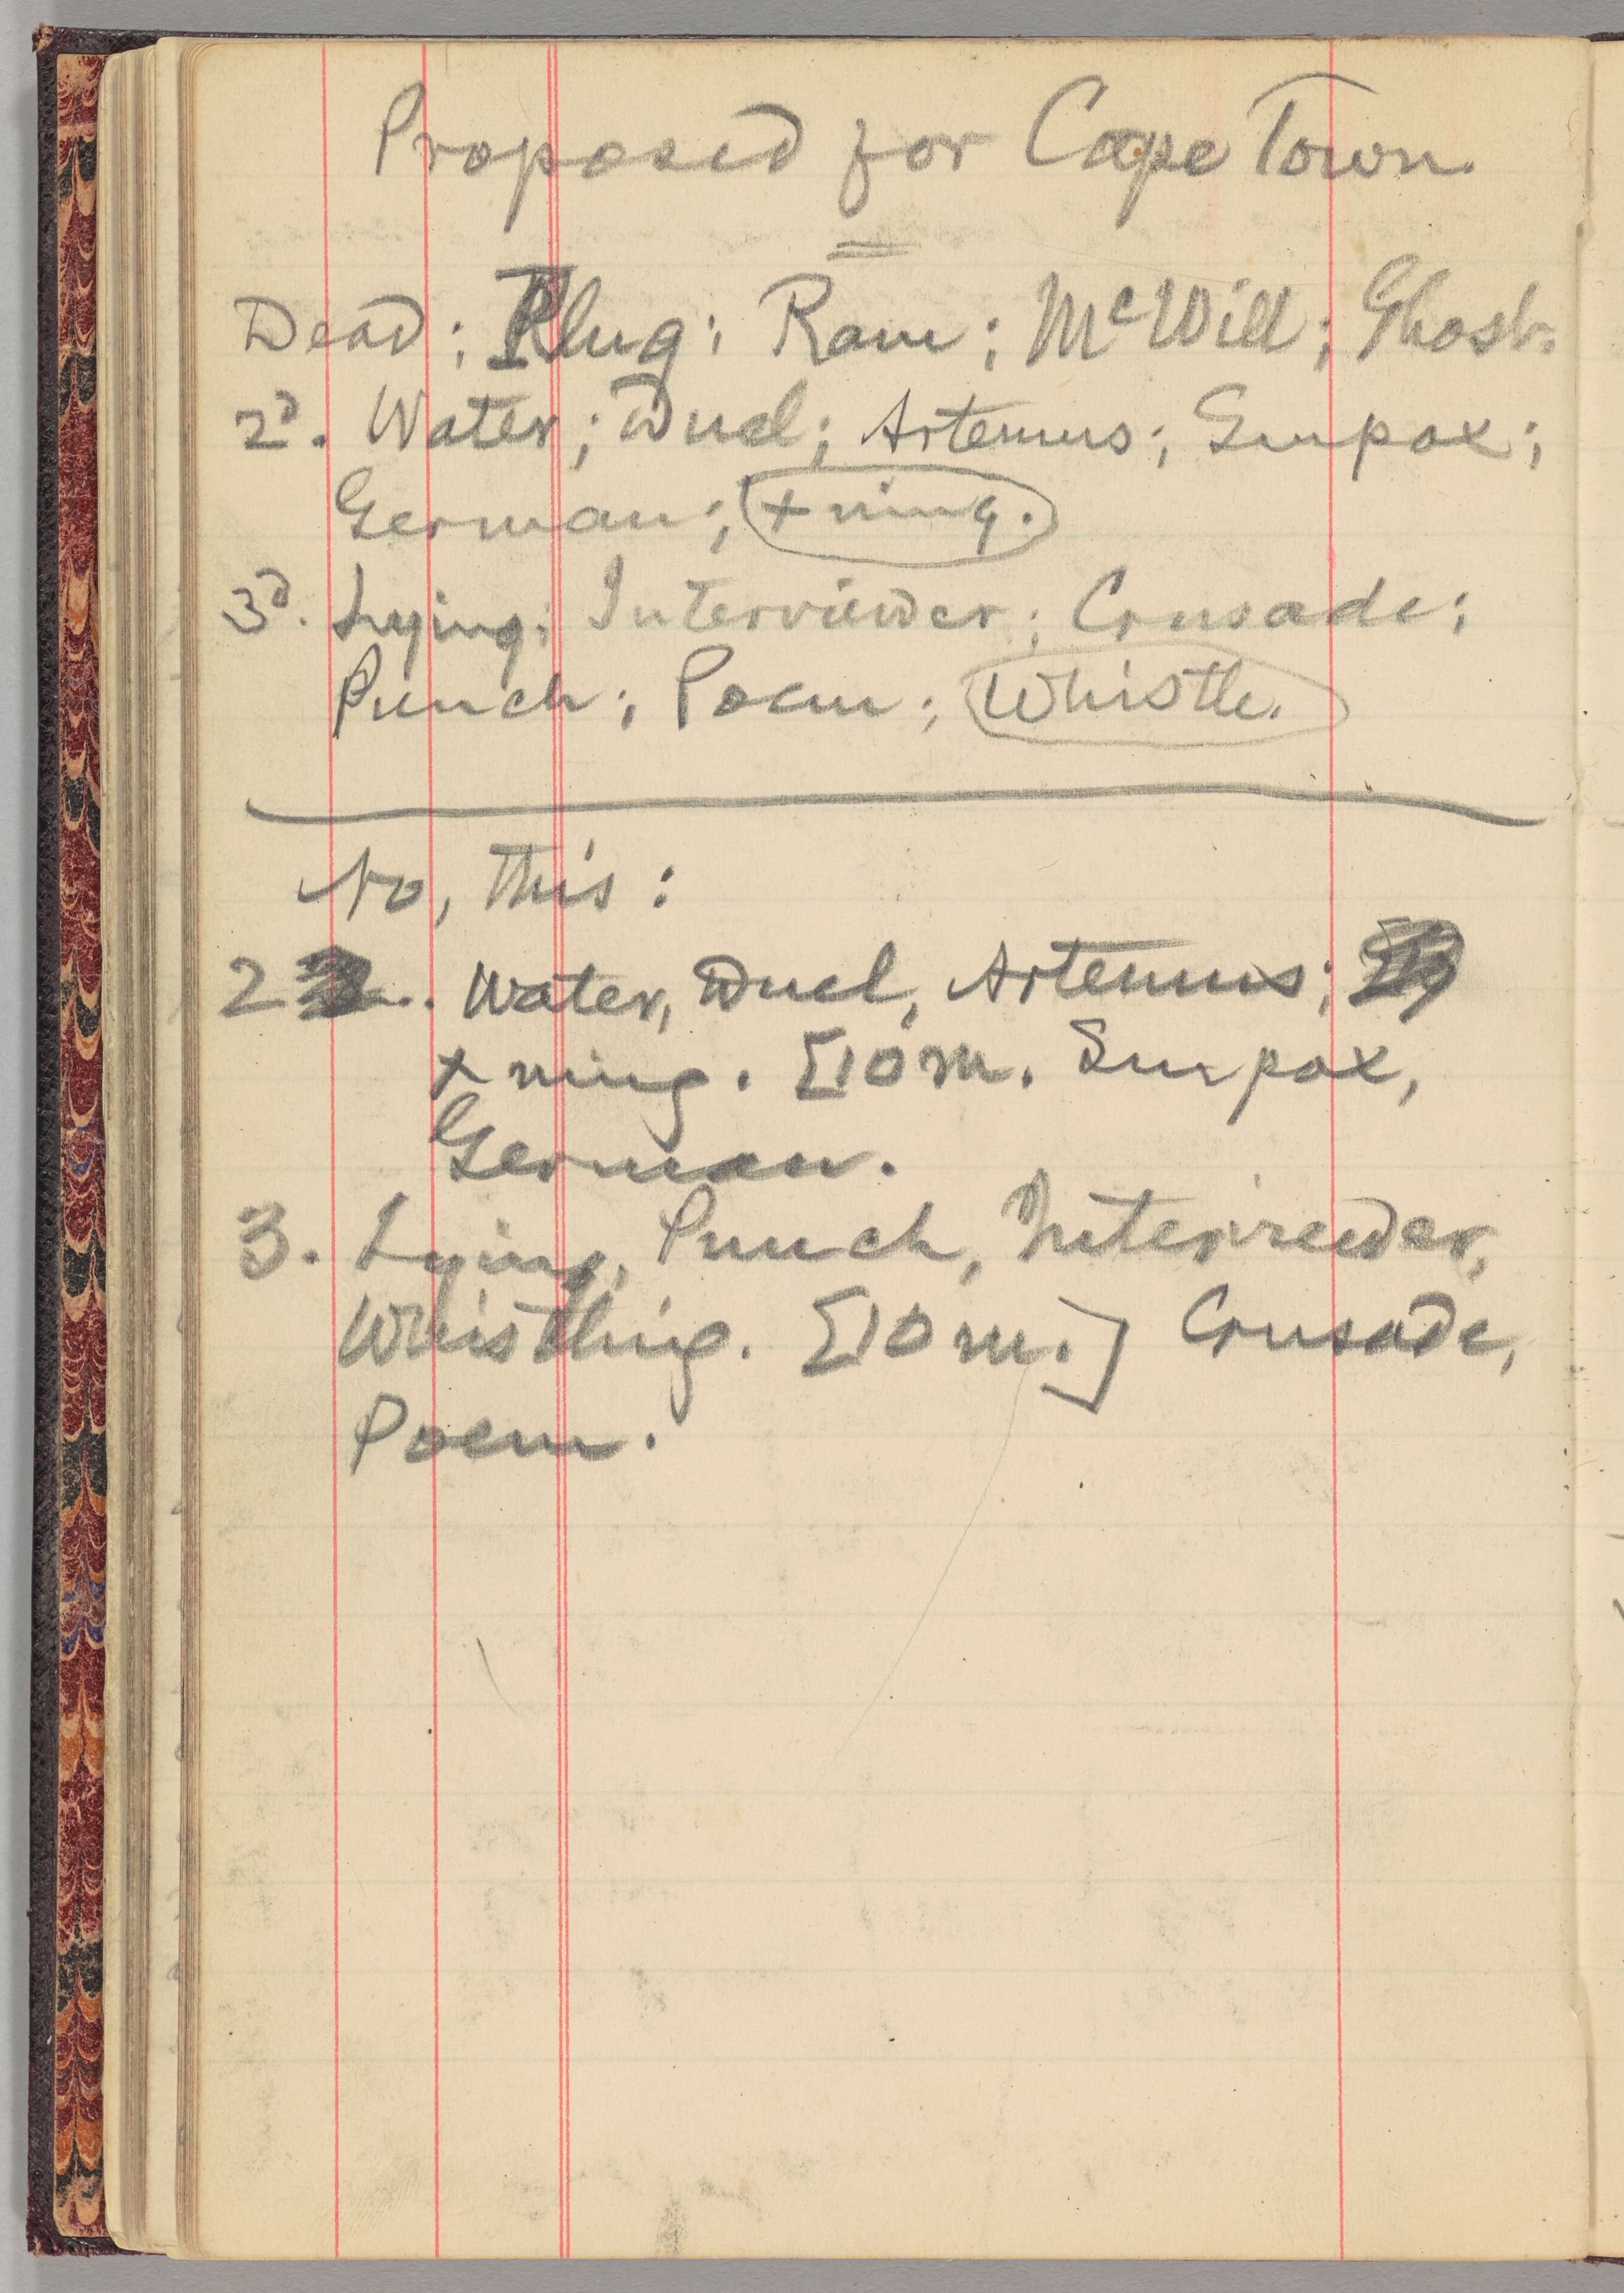 Proposed for Cape Town.
Dead; Plug; Ram; McWill; Ghost.
2d. Water; Duel; Artemus; Smpox;
German; +ning.
3d. Lying; Interviewer; Crusade;
Punch; Poem; Whistle.
No, this:
2 . Water, Duel, Artemus;
+ning. [10 m. Smpox,
German.
3. Lying, Punch, Interviewer,
Whistling. [10 m.] Crusade,
Poem.